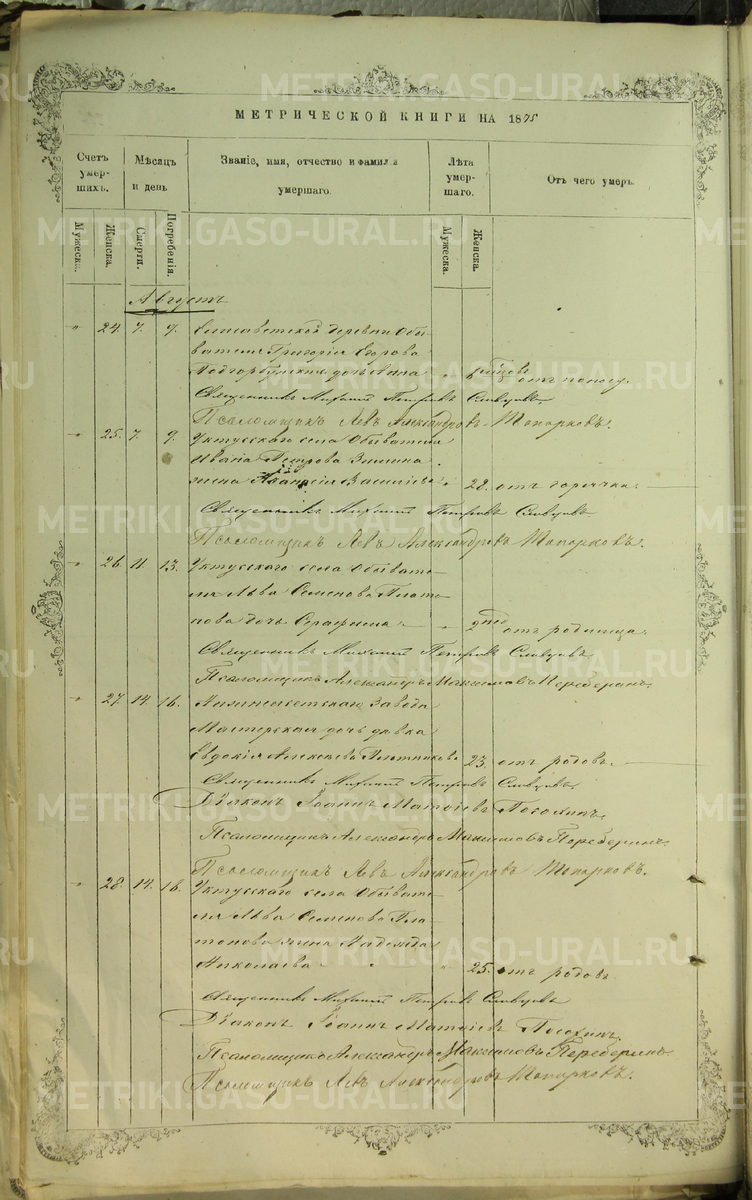 МЕТРИЧЕСКОЙ КНИГИ НА 1875
Счетъ умершихъ.
Мѣсяцъ и день
Званіе, имя, отчество и фамилія умершаго.
Лѣта умершаго.
Отъ чего умеръ.
Мужеска.
Женска.
Смерти.
Погребенія.
Мужеска.
Женска.
Августъ
" 24. 7. 9. Елисаветской деревни Обы-
вателя Григорія Егорова
дочь Анна " отъ поносу.
Священникъ Михаилъ Петровъ Словцовъ
Псаломщикъ Левъ Александровъ Топорковъ.
" 25. 7. 9. Уктусскаго села Обывателя
Ивана Петрова
жена Васильева " 28. отъ горячки.
Священникъ Михаилъ Петровъ Словцовъ
Псаломщикъ Левъ Александровъ Топорковъ.
" 26. 11. 13. Уктусскаго села Обывате-
ля Льва Семенова Плато-
нова дочь Серафима " 2 отъ родимца.
Священникъ Михаилъ Петровъ Словцовъ
Псаломщикъ Александръ Максимовъ Переберинъ.
" 27. 14. 16. Нижнеисетскаго Завода
Мастерская дочь дѣвка
Евдокія Алексѣева Плотникова 23. отъ родовъ.
Священникъ Михаилъ Петровъ Словцовъ
Діаконъ Іоаннъ Матѳіевъ
Псаломщикъ Александръ Максимовъ Переберинъ.
Псаломщикъ Левъ Александровъ Топорковъ.
" 28. 14. 16. Уктусскаго села Обывате-
ля Льва Семенова Пла-
тонова жена Надежда
Николаева " 25. отъ родовъ
Священникъ Михаилъ Петровъ Словцовъ
Діаконъ Іоаннъ Матѳіевъ
Псаломщикъ Александръ Максимовъ Переберинъ.
Псаломщикъ Левъ Александровъ Топорковъ.
METRIKI.GASO-URAL.RU